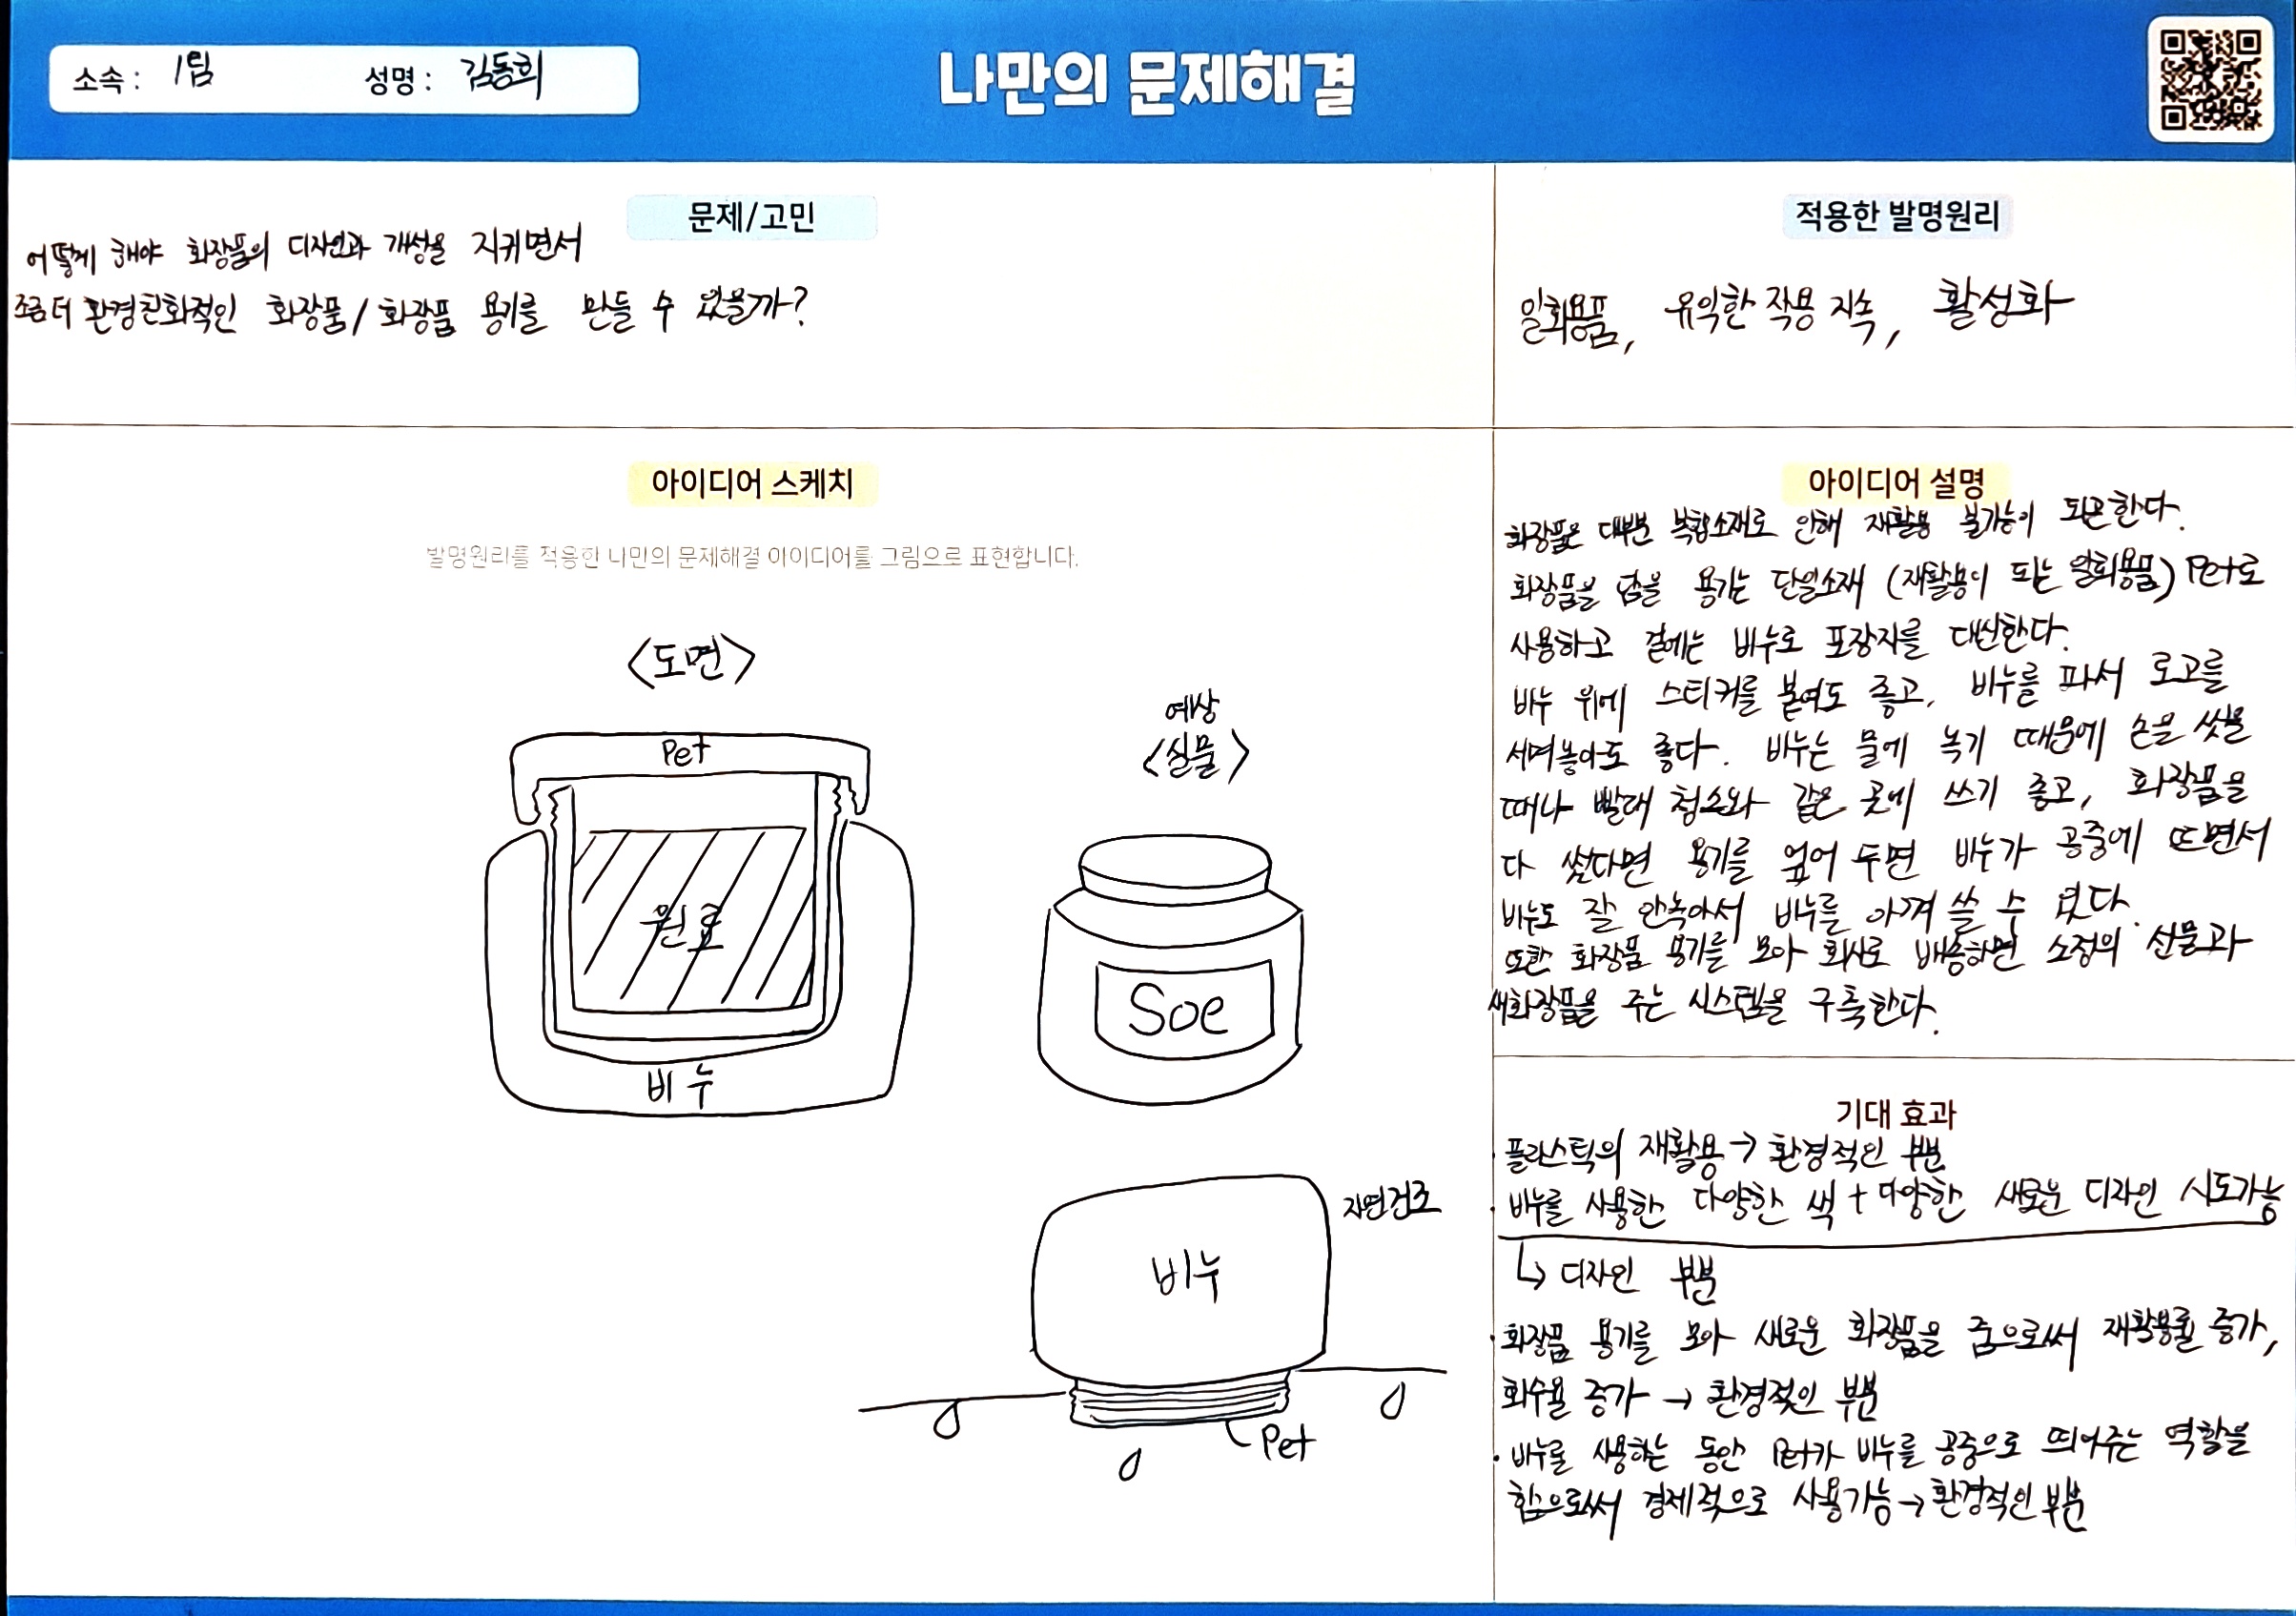 소속 : 1팀
성명 : 김동희
나만의 문제해결
문제/고민
어떻게 해야 화장품의 디자인과 개성을 지키면서
조금 더 환경친화적인 화장품/화장품 용기를 만들 수 있을까?
적용한 발명원리
일회용품, 유익한 작용 지속, 활성화
아이디어 스케치
발명원리를 적용한 나만의 문제해결 아이디어를 그림으로 표현합니다.
<도면>
Pet
원료
비누
예상
<실물>
Soe
비누
자연건조
Pet
아이디어 설명
화장품은 대부분 복합소재로 인해 재활용 불가능이 되곤한다.
화장품을 담을 용기는 단일소재 (재활용이 되는 일회용품) Pet로
사용하고 겉에는 비누로 포장지를 대신한다.
비누 위에 스티커를 붙여도 좋고, 비누를 파서 로고를
새겨놓아도 좋다. 비누는 물에 녹기 때문에 손을 씻을
때나 빨래 청소와 같은 곳에 쓰기 좋고, 화장품을
다 썼다면 용기를 엎어 두면 비누가 공중에 뜨면서
비누도 잘 안녹아서 비누를 아껴 쓸 수 있다.
또한 화장품 용기를 모아 회사로 배송하면 소정의 선물과
새화장품을 주는 시스템을 구축한다.
기대 효과
· 플라스틱의 재활용 → 환경적인 부분
· 비누를 사용한 다양한 색 + 다양한 새로운 디자인 시도가능
↳ 디자인 부분
· 화장품 용기를 모아 새로운 화장품을 줌으로써 재활용률 증가,
회수율 증가 → 환경적인 부분
· 비누를 사용하는 동안 Pet가 비누를 공중으로 띄어주는 역할을
힘으로써 경제적으로 사용가능 → 환경적인 부분